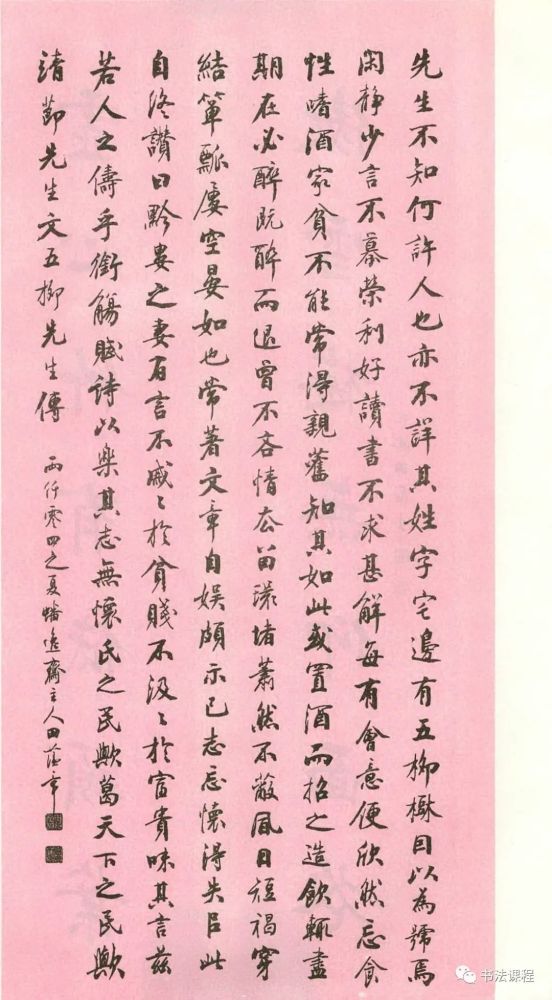 先生不知何許人也亦不詳其姓字宅邊有五柳樹因以為號焉
閑静少言不慕榮利好讀書不求甚解每有會意便欣然忘食
性嗜酒家貧不能常得親舊知其如此或置酒而招之造飲輒盡
期在必醉既醉而退曾不吝情去留環堵蕭然不蔽風日短褐穿
結簞瓢屢空晏如也常著文章自娱頗示己志忘懷得失以此
自終讚曰黔婁之妻有言不戚々於貧賤不汲々於富貴味其言茲
若人之儔乎銜觴賦詩以樂其志無懷氏之民歟葛天下之民歟
靖節先生文五柳先生傳
兩仟零四之夏 齋主人田蕴章
书法课程